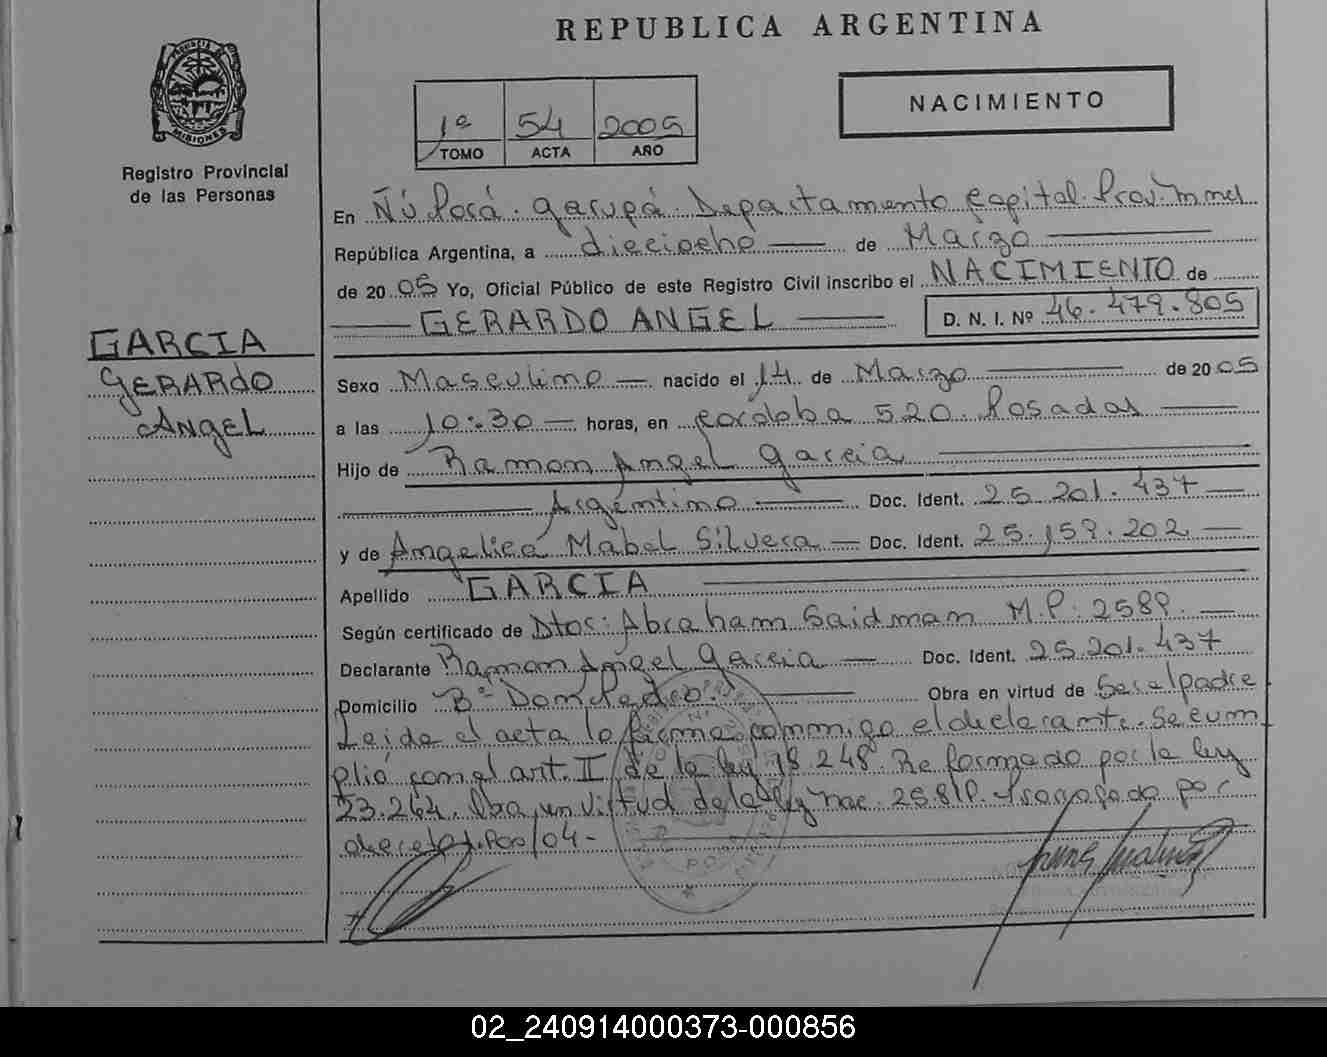 REPUBLICA ARGENTINA
PROVINCIA DE
MISIONES
Registro Provincial
de las Personas
1º 54 2005
TOMO ACTA AÑO
NACIMIENTO
En Ñú Porá. Garupá. Departamento Capital. Prov. Mnes
República Argentina, a dieciocho de Marzo
de 20 05 Yo, Oficial Público de este Registro Civil inscribo el NACIMIENTO de
GERARDO ANGEL D. N. I. Nº 46.479.805
GARCIA
GERARDO
ANGEL
Sexo Masculino nacido el 14 de Marzo de 20 05
a las 10:30 horas, en Córdoba 520. Posadas
Hijo de Ramon Angel Garcia
Argentino Doc. Ident. 25.201.437
y de Angelica Mabel Silvera Doc. Ident. 25.159.202
Apellido GARCIA
Según certificado de Dtor: Abraham Saidman M.P. 2589.
Declarante Ramon Angel Garcia Doc. Ident. 25.201.437
Domicilio Bº Don Pedro. Obra en virtud de Ser el padre
Leida el acta la firma conmigo el declarante. Se cum
plió con el art. II de la ley 18.248. Reformado por la ley
23.264. Oba en virtud de la ley nac. 25.819. Prorrogado por
decreto
/04-
02_240914000373-000856